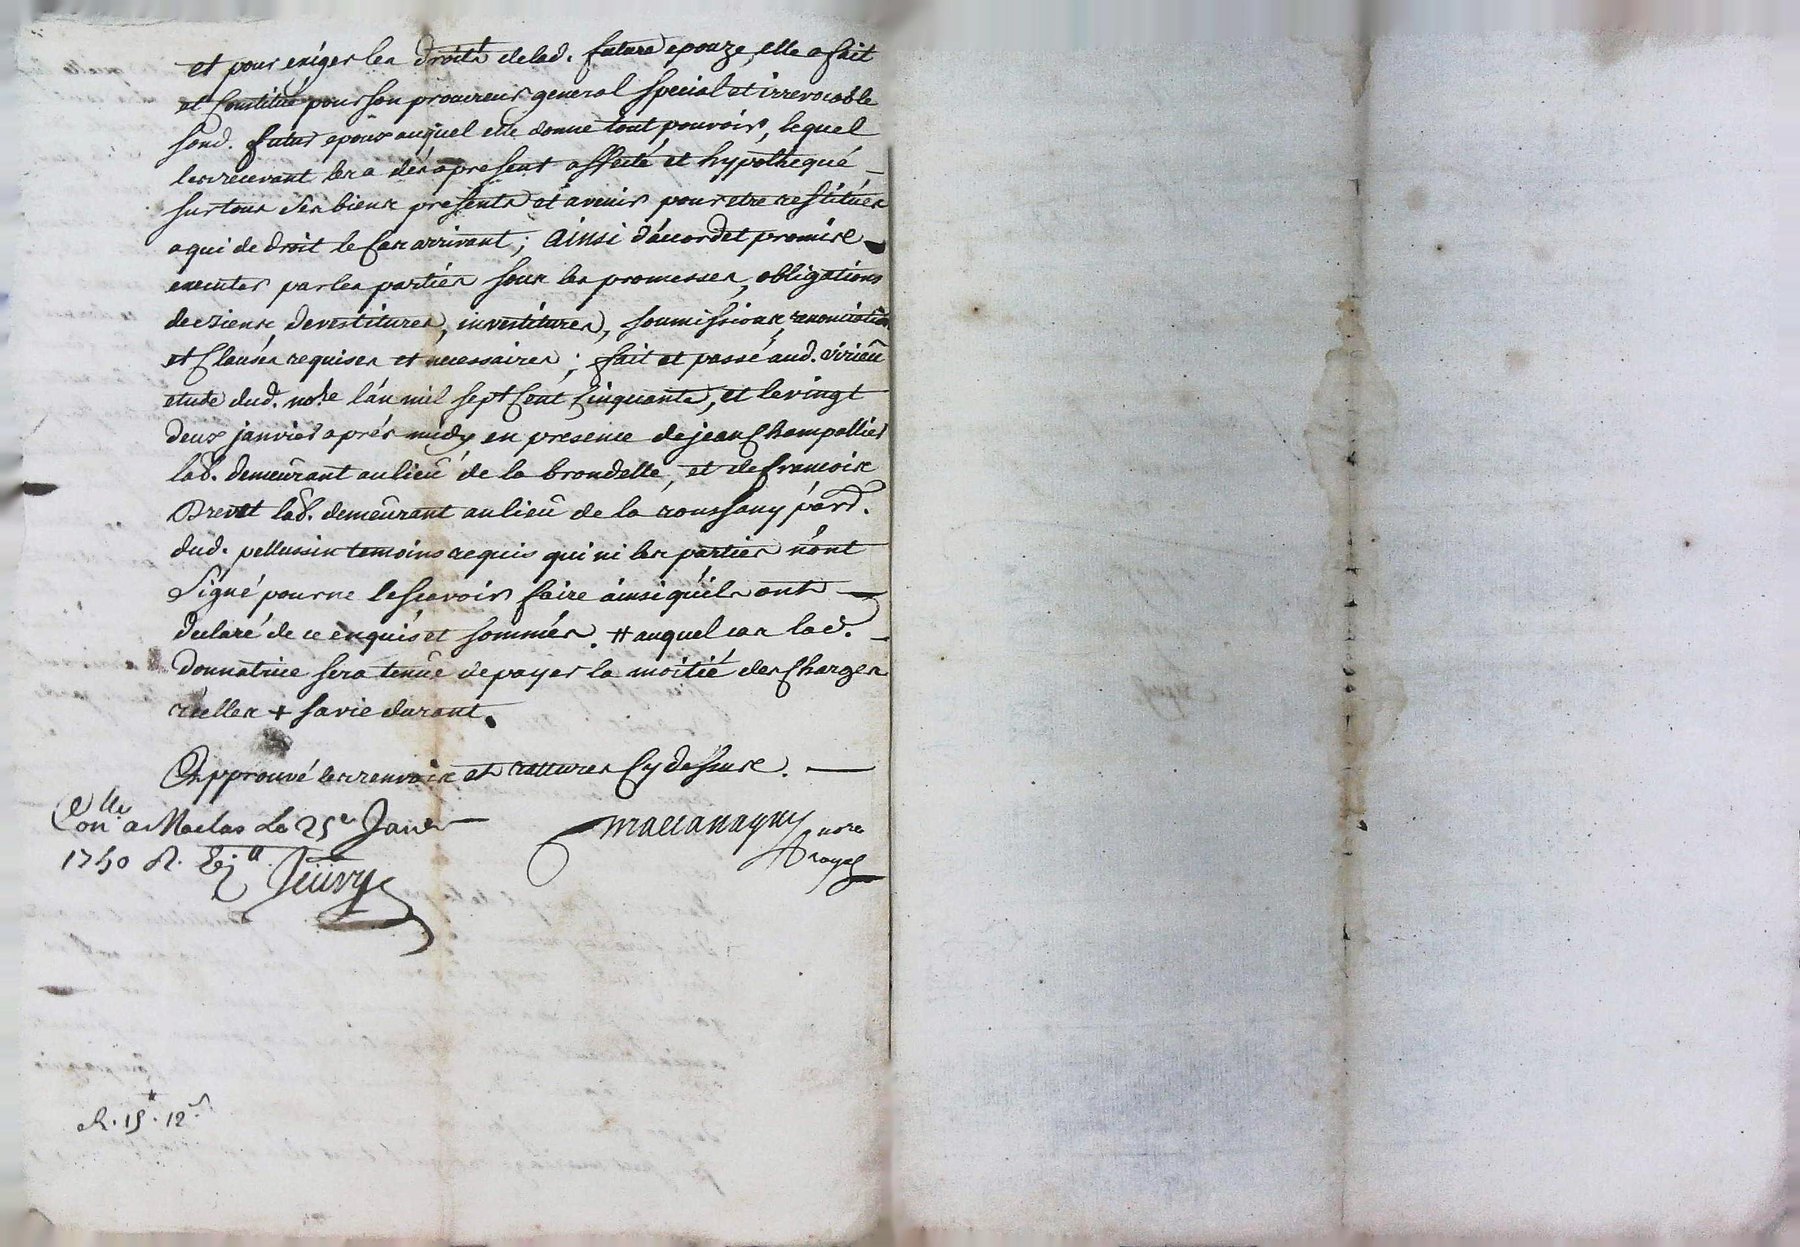 et pour exiger les droits delad. future epouze, elle a fait
et Constitué pour son procureur general special et irrevocable
sond. futur epoux auquel elle donne tout pouvoir, lequel
les recevant les a dés apresent affecté et hypothequé
sur tous ses biens presents et avenir pour etre restitués
a qui de droit le Cas arrivant ; ainsi d'accord et promis
executer par les parties sous les promesses, obligations
de biens devestitures, investitures, soumissions, renonciations
et Clauses requises et necessaires ; fait et passé aud. virieu
etude dud. no.re l'an mil sept Cent Cinquante, et le vingt
deux janvier aprés midy en presence de jean Champallier
lab. demeurant au lieu de la brondelle, et de francois
Brevet lab. demeurant au lieu de la roussany par.
dud. pellussin temoins requis qui ni les parties n'ont
signé pour ne le scavoir faire ainsi qu'ils ont
declaré de ce enquis et sommés. # auquel cas lad.
donnatrice sera tenue de payer la moitié des Charges
réelles + sa vie durant.
Approuvé les renvois et ratures Cy dessus.
Con.lle a Maclas Le 25e Janer
1750 R.
no.re
royal
R. 15. 12 s